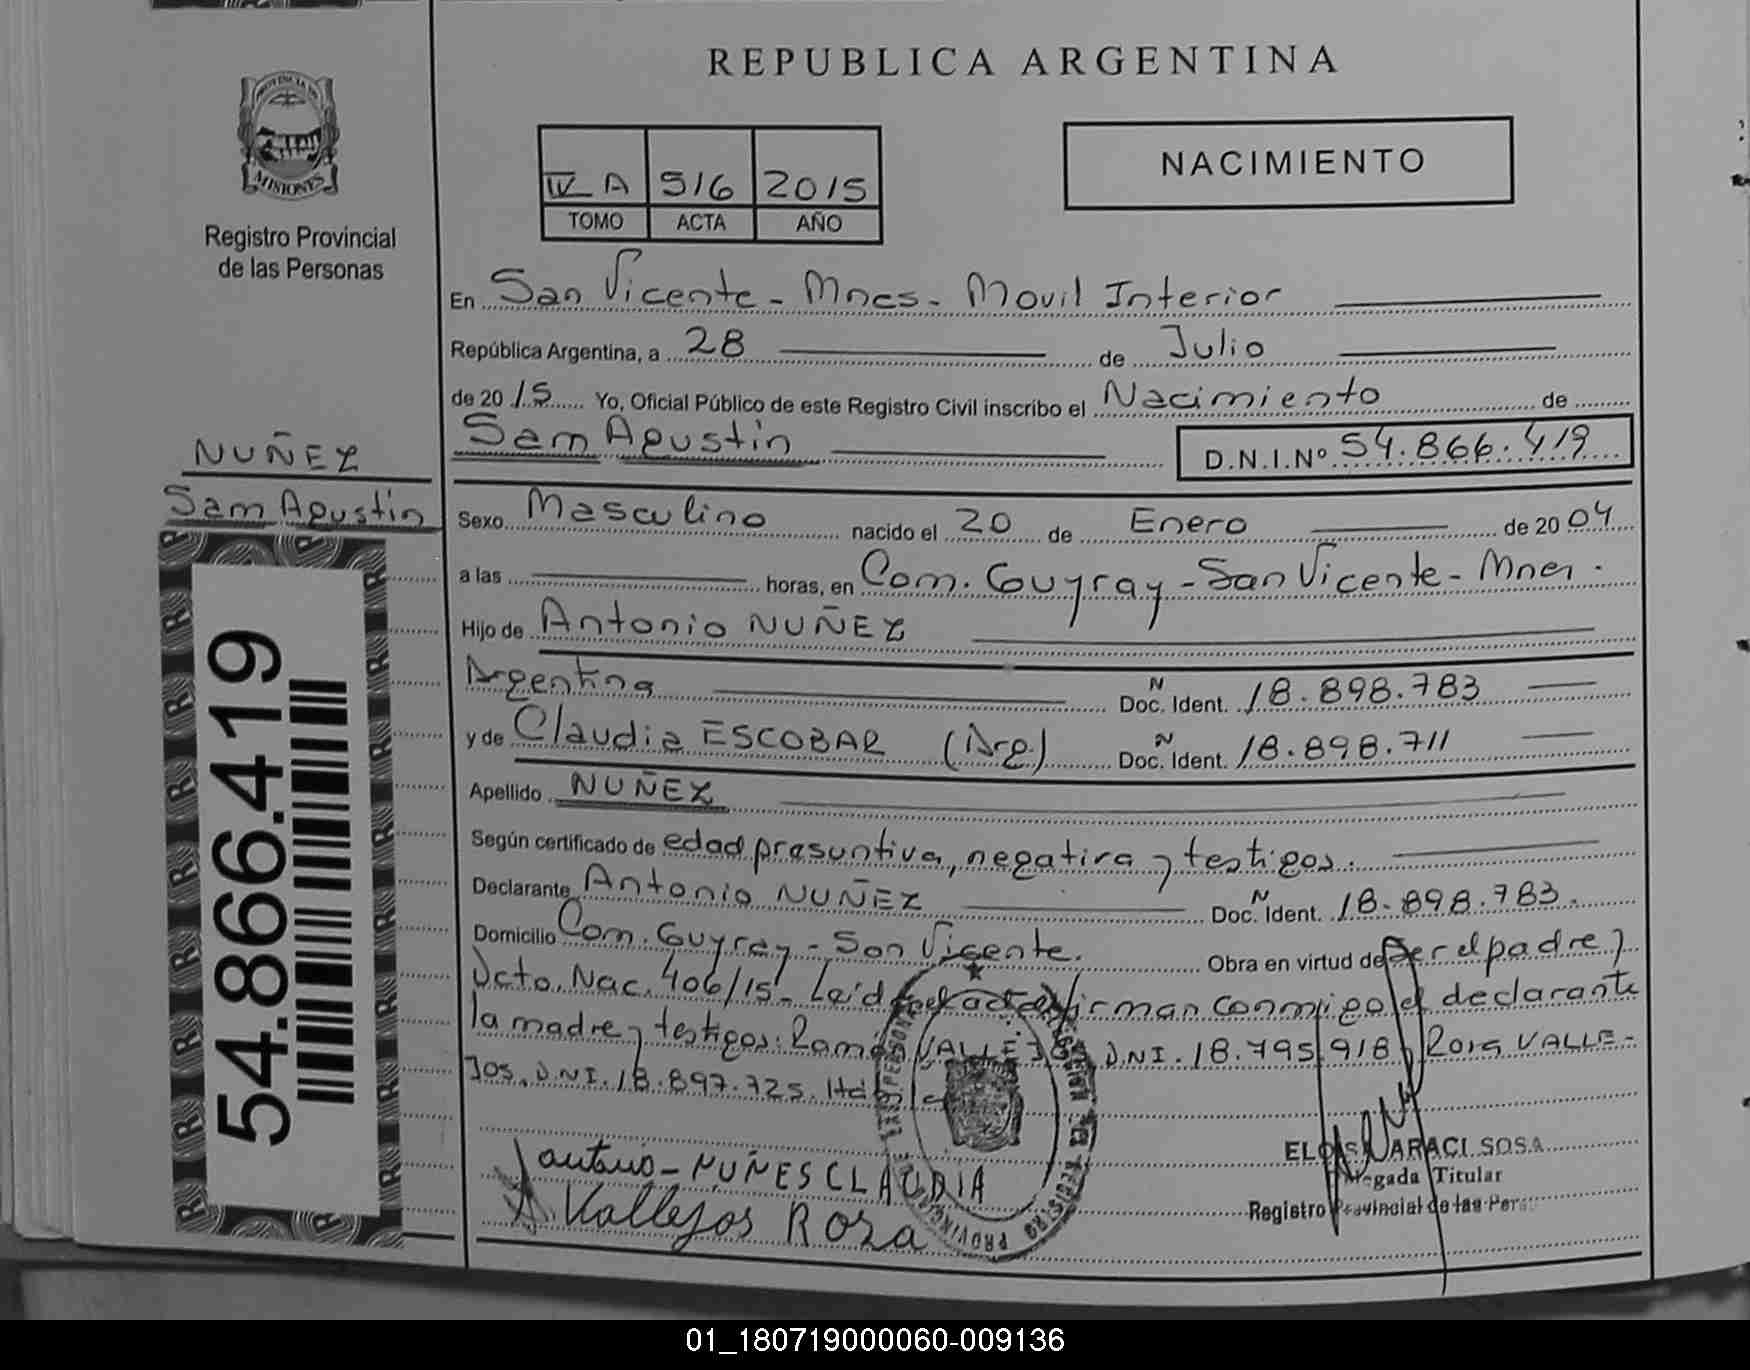 REPUBLICA ARGENTINA
PROVINCIA DE
MISIONES
Registro Provincial
de las Personas
IV A 516 2015
TOMO ACTA AÑO
NACIMIENTO
En San Vicente - Mnes - Movil Interior
República Argentina, a 28 de Julio
de 20 15 Yo, Oficial Público de este Registro Civil inscribo el Nacimiento de
Sam Agustin D.N.I.Nº 54.866.419
NUÑEZ
Sam Agustin
Sexo Masculino nacido el 20 de Enero de 20 04
a las horas, en Com. Guyray - San Vicente - Mnes.
Hijo de Antonio NUÑEZ
Argentina Doc. Ident. N 18.898.783
y de Claudia ESCOBAR (Arg.) Doc. Ident. N 18.898.711
Apellido NUÑEZ
Según certificado de edad presuntiva, negativa y testigos.
Declarante Antonio NUÑEZ Doc. Ident. N 18.898.783.
Domicilio Com. Guyray - San Vicente. Obra en virtud de Ser el padre y
Dcto. Nac. 406/15 - Leída el acta firman conmigo el declarante
la madre y testigos: VALLEJOS D.N.I. 18.795.918 y Rosa VALLE-
JOS. D.N.I. 18.897.725.
antonio - NUÑES CLAUDIA
Vallejos Rosa
ARACI SOSA
Titular
Registro Provincial de las Pers
54.866.419
01_180719000060-009136